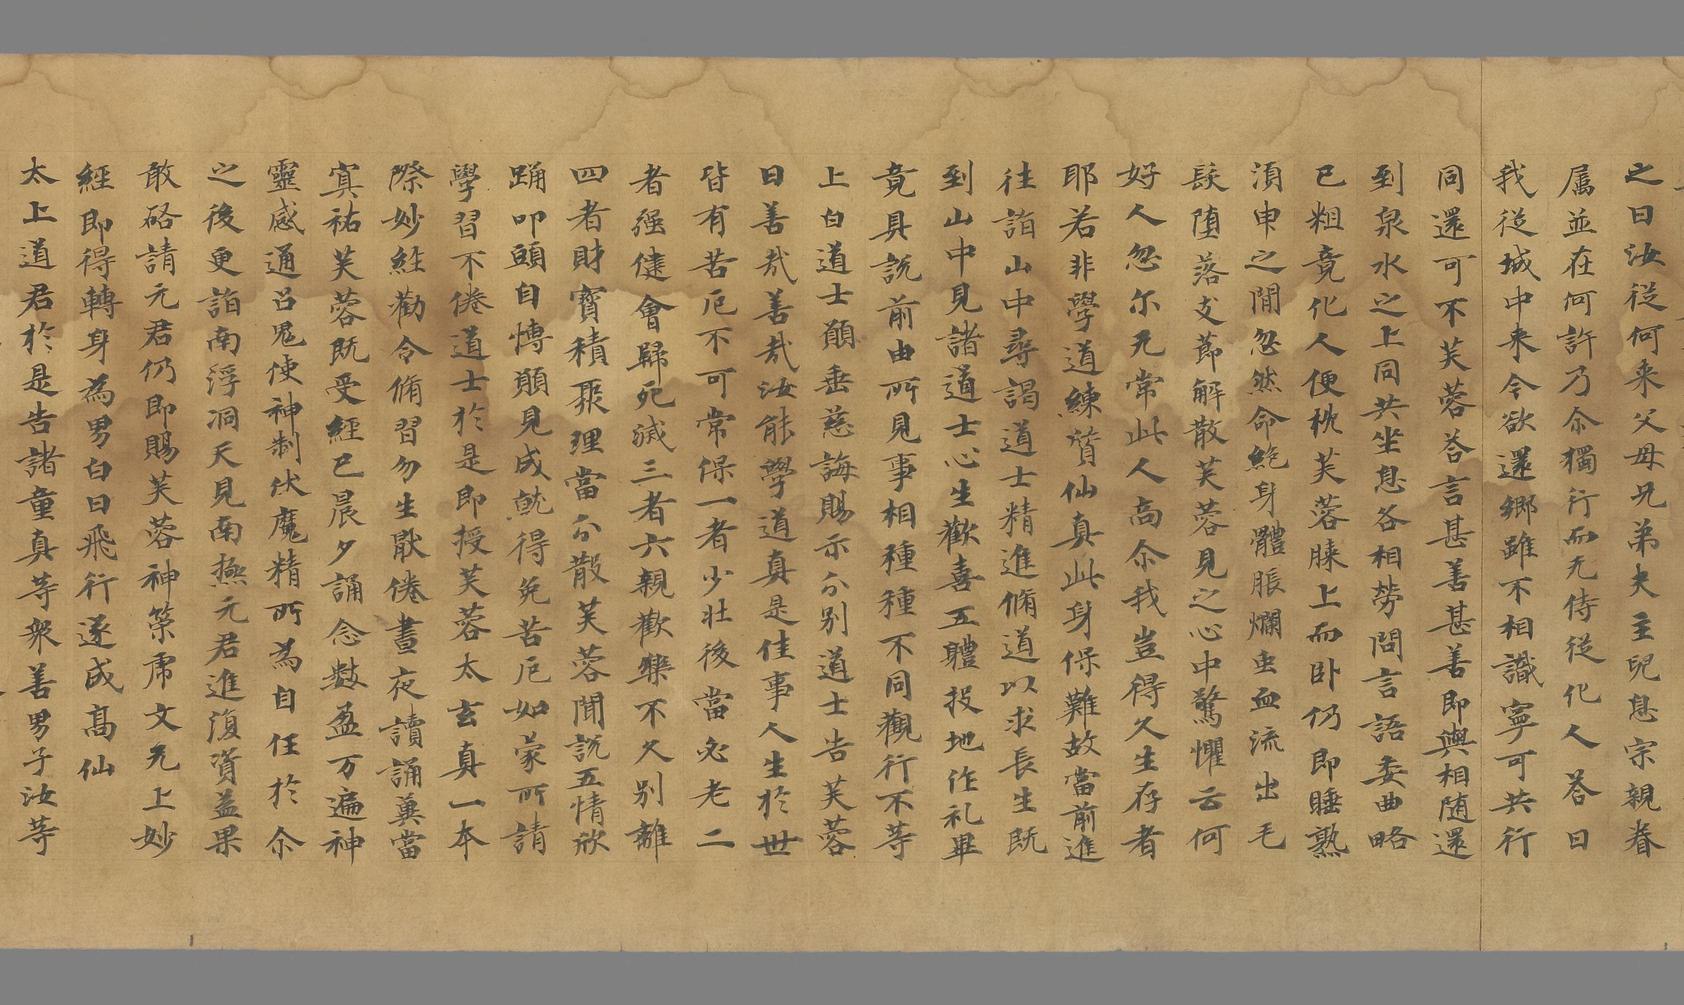 之曰汝從何来父母兄弟夫主兒息宗親眷
属並在何許乃尒獨行而无侍從化人荅曰
我從城中来今欲還鄉雖不相識寧可共行
同還可不芙蓉荅言甚善甚善即與相随還
到泉水之上同共坐息各相勞問言語委曲略
已粗竟化人便枕芙蓉膝上而卧仍即睡熟
湏申之間忽然命絶身體脹爛虫血流出毛
髮堕落支莭解散芙蓉見之心中驚懼云何
好人忽尓无常此人高尒我豈得久生存者
耶若非學道練質仙真此身保難故當前進
往詣山中尋謁道士精進脩道以求長生既
到山中見諸道士心生歡喜五體投地作礼畢
竟具説前由所見事相種種不同觀行不等
上白道士願垂慈誨賜示分别道士告芙蓉
曰善㢤善㢤汝能學道真是佳事人生於世
皆有苦厄不可常保一者少壮後當必老二
者强健會歸死滅三者六親歡樂不久别離
四者財寳積聚理當分散芙蓉聞説五情欣
踊叩頭自慱願見成就得免苦厄如蒙所請
學習不倦道士於是即授芙蓉太玄真一本
際妙經勸令脩習勿生猒倦晝夜讀誦冀當
寘祐芙蓉既受經已晨夕誦念數盈万遍神
靈感通召鬼使神制伏魔精所為自任於尒
之後更詣南浮洞天見南極元君進復資益果
敢啓請元君仍即賜芙蓉神策虎文无上妙
經即得轉身為男白日飛行遂成髙仙
太上道君於是告諸童真等衆善男子汝等